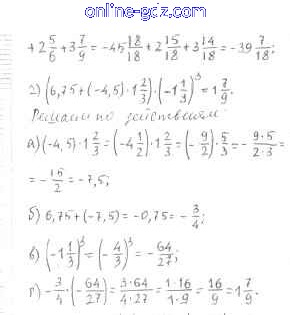 online-gdz.com
+2 5/6 + 3 7/9 = -45 18/18 + 2 15/18 + 3 14/18 = -39 7/18;
2) (6,75+(-4,5)·1 2/3)·(-1 1/3)³ = 1 7/9.
Решаем по действиям:
а) (-4,5)·1 2/3 = (-4 1/2)·1 2/3 = (-9/2)·5/3 = -9·5/2·3 =
= -15/2 = -7,5;
б) 6,75+(-7,5) = -0,75 = -3/4;
в) (-1 1/3)³ = (-4/3)³ = -64/27;
г) -3/4·(-64/27) = 3·64/4·27 = 1·16/1·9 = 16/9 = 1 7/9.